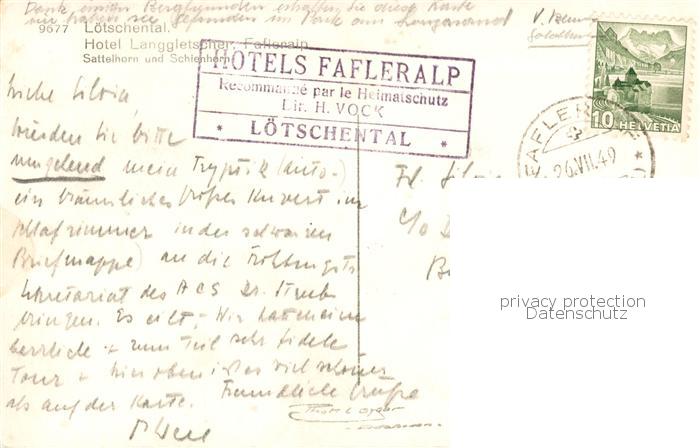 Dank einem Bergfreunden erhalten Sie diese Karte
wir haben sie gefunden im Park am
9677 Lötschental.
Hotel Langgletscher, Fafleralp
Sattelhorn und Schienhorn
HOTELS FAFLERALP
Recommandé par le Heimatschutz
Dir. H. VOCK
* LÖTSCHENTAL *
10 HELVETIA
FAFLERALP
26.VII.49
Liebe Silvia,
würden Sie bitte
umgehend mein Tryptik (Auto-)
ein bräunliches großes Kuvert im
Schlafzimmer in der schwarzen
Briefmappe) an die
Sekretariat des ACS Dr.
bringen. Es eilt. Wir hatten eine
herrliche + zum Teil sehr fidele
Tour + hier oben ist es viel schöner
als auf der Karte. Freundliche Grüße
Frl. Silvia
c/o D
B
privacy protection
Datenschutz